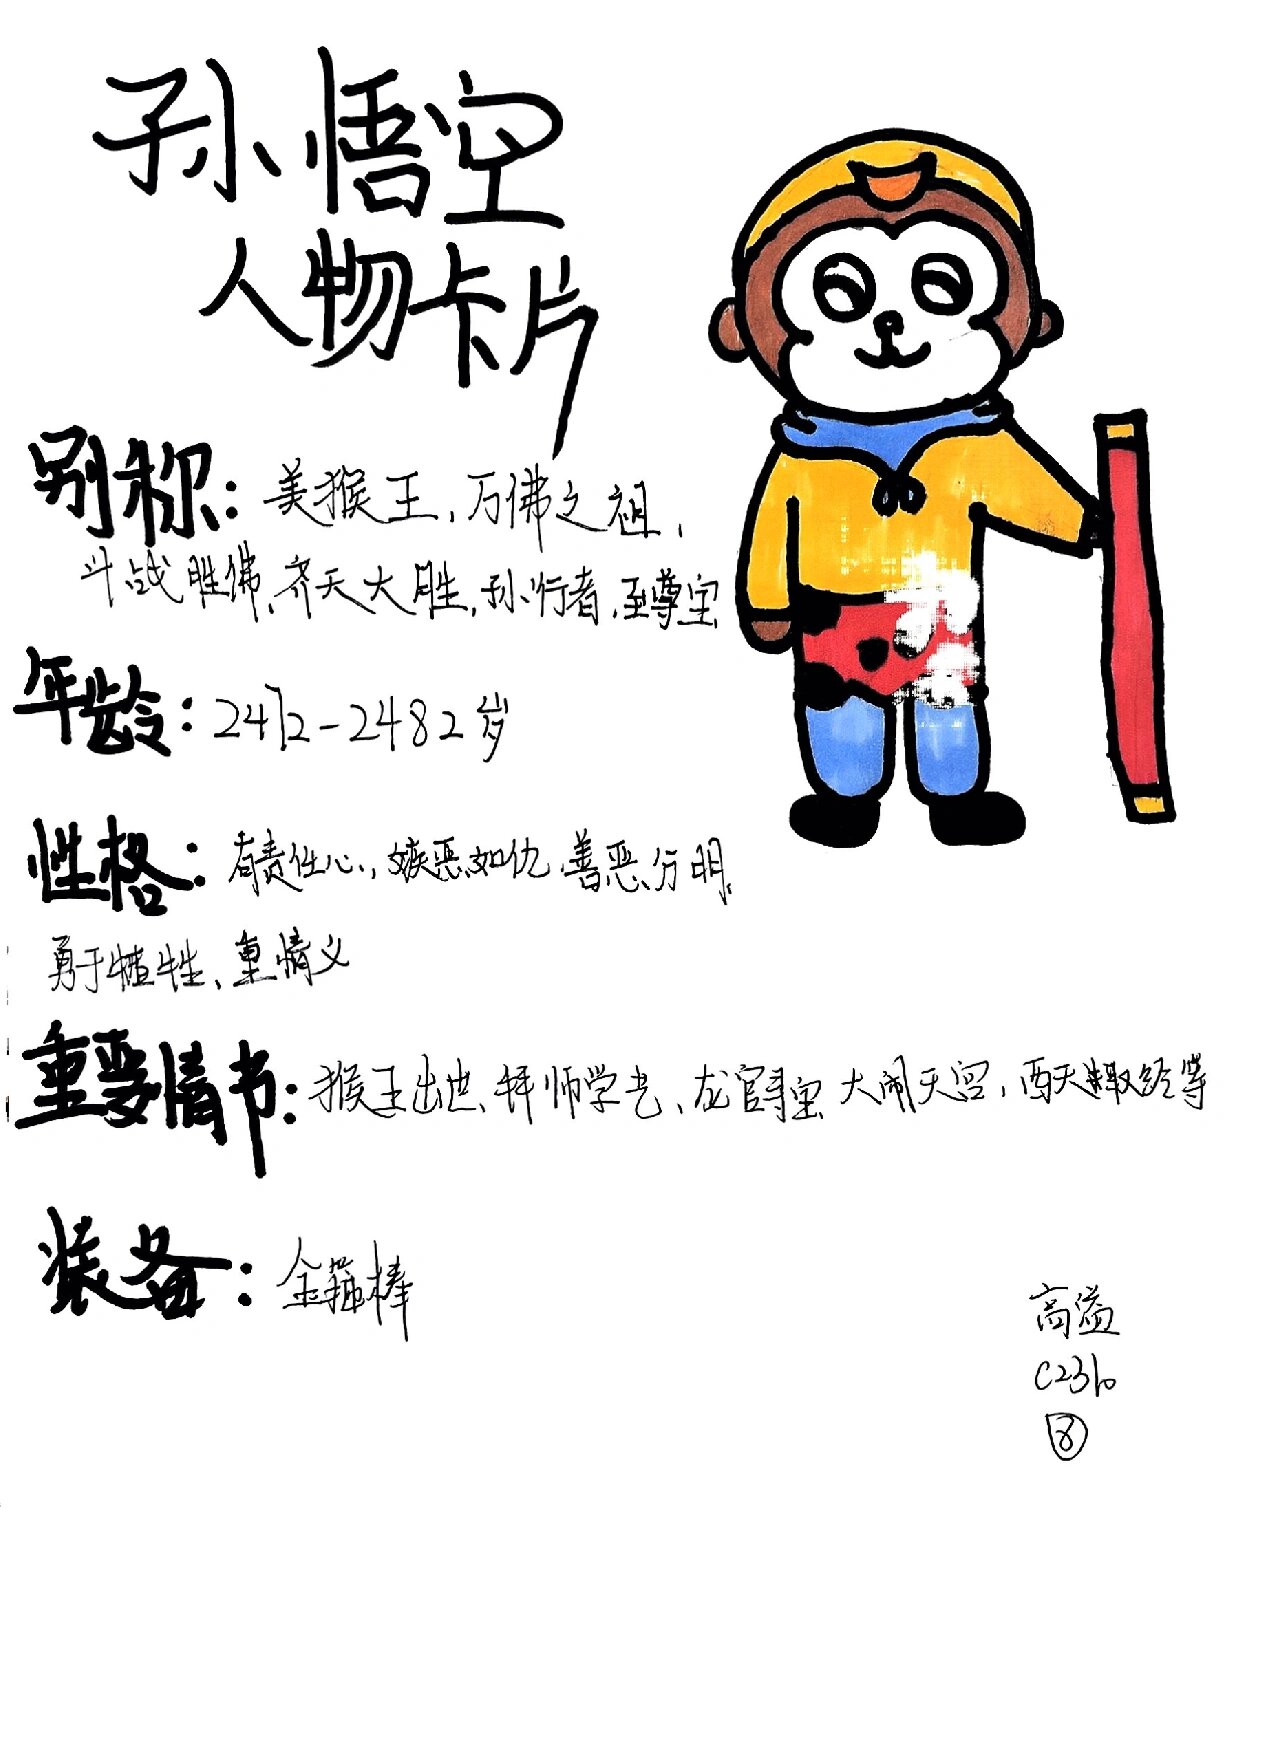 孙悟空
人物卡片
别称：美猴王、万佛之祖、
斗战胜佛、齐天大胜、孙行者、至尊宝
年龄：2472-2482岁
性格：有责任心、嫉恶如仇、善恶分明、
勇于牺牲、重情义
重要情节：猴王出世、拜师学艺、龙宫寻宝 大闹天宫、西天取经等
装备：金箍棒
高溢
C2310
⑧